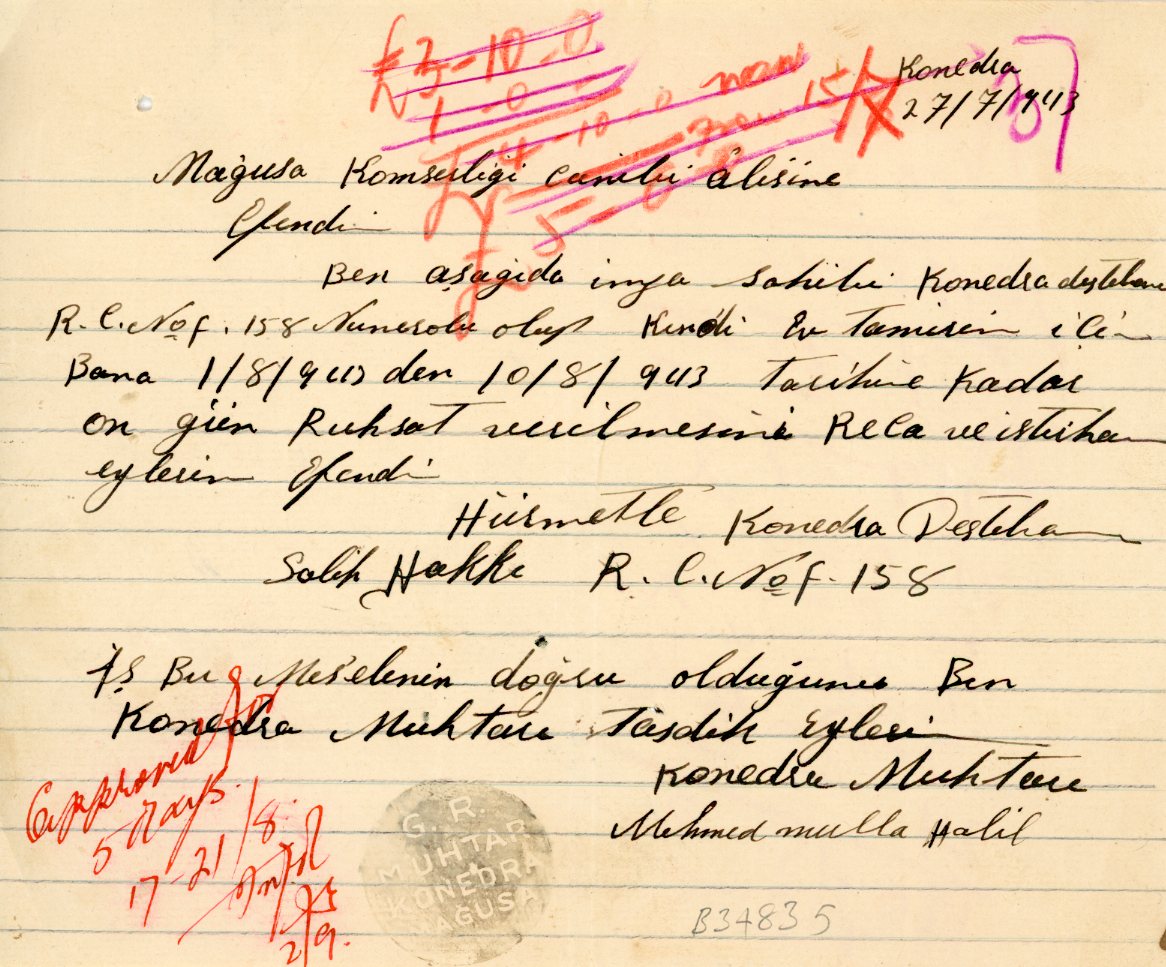 £3-10-0
1 - 0
4-10-0 now
from 15/8
£5
Konedra
27/7/943
57
Mağusa Komserligi canibi âlisine
Efendim
Ben aşagida imza sahibi Konedra deşteban
R.C. No f. 158 Numerolu olup Kendi Ev tamirim için
Bana 1/8/943 den 10/8/943 tarihine Kadar
on gün Ruhsat verilmesini Reca ve istirham
eylerim Efendim
Hürmetle Konedra Deşteban
Salih Hakkı R.C. No f. 158
İş Bu Mes'elenin doğru olduğunu Ben
Konedra Muhtarı Tasdik Eylerim
Konedra Muhtarı
Mehmed mulla Halil
Approved for
5 days.
17-21/8
2/9.
G. R.
MUHTAR
KONEDRA
MAGUSA
B34835